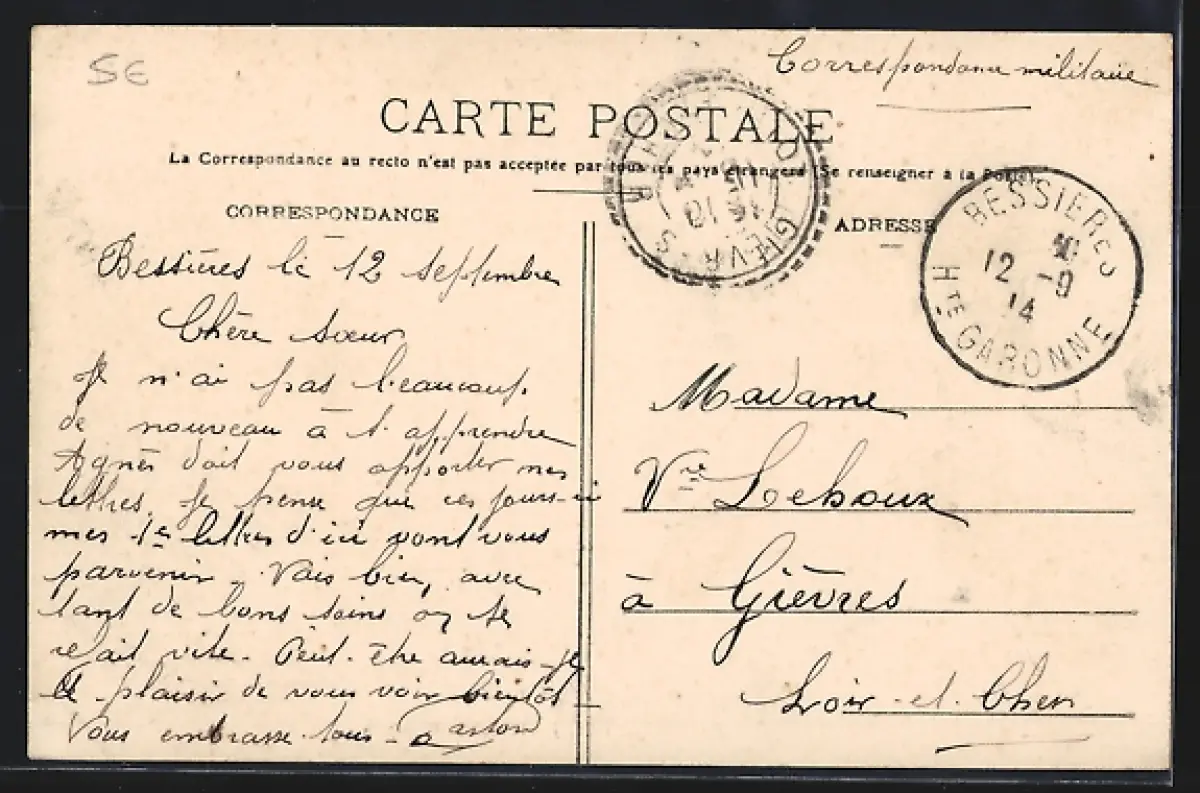 5E
Correspondance militaire
CARTE POSTALE
La Correspondance au recto n'est pas acceptée par tous les pays étrangers (Se renseigner à la Poste)
CORRESPONDANCE
ADRESSE
BESSIERES
12 -9
14
HTE GARONNE
GIEVRES
Bessières le 12 septembre
Chère sœur
Je n'ai pas beaucoup
de nouveau à t'apprendre
Agnès doit vous apporter mes
lettres. Je pense que ces jours-ci
mes 1es lettres d'ici vont vous
parvenir. Vais bien, avec
tant de bons soins on se
refait vite. Peut-être aurais-je
le plaisir de vous voir bientôt
Vous embrasse tous - Gaston
Madame
Vve Leboux
à Gièvres
Loir-et-Cher